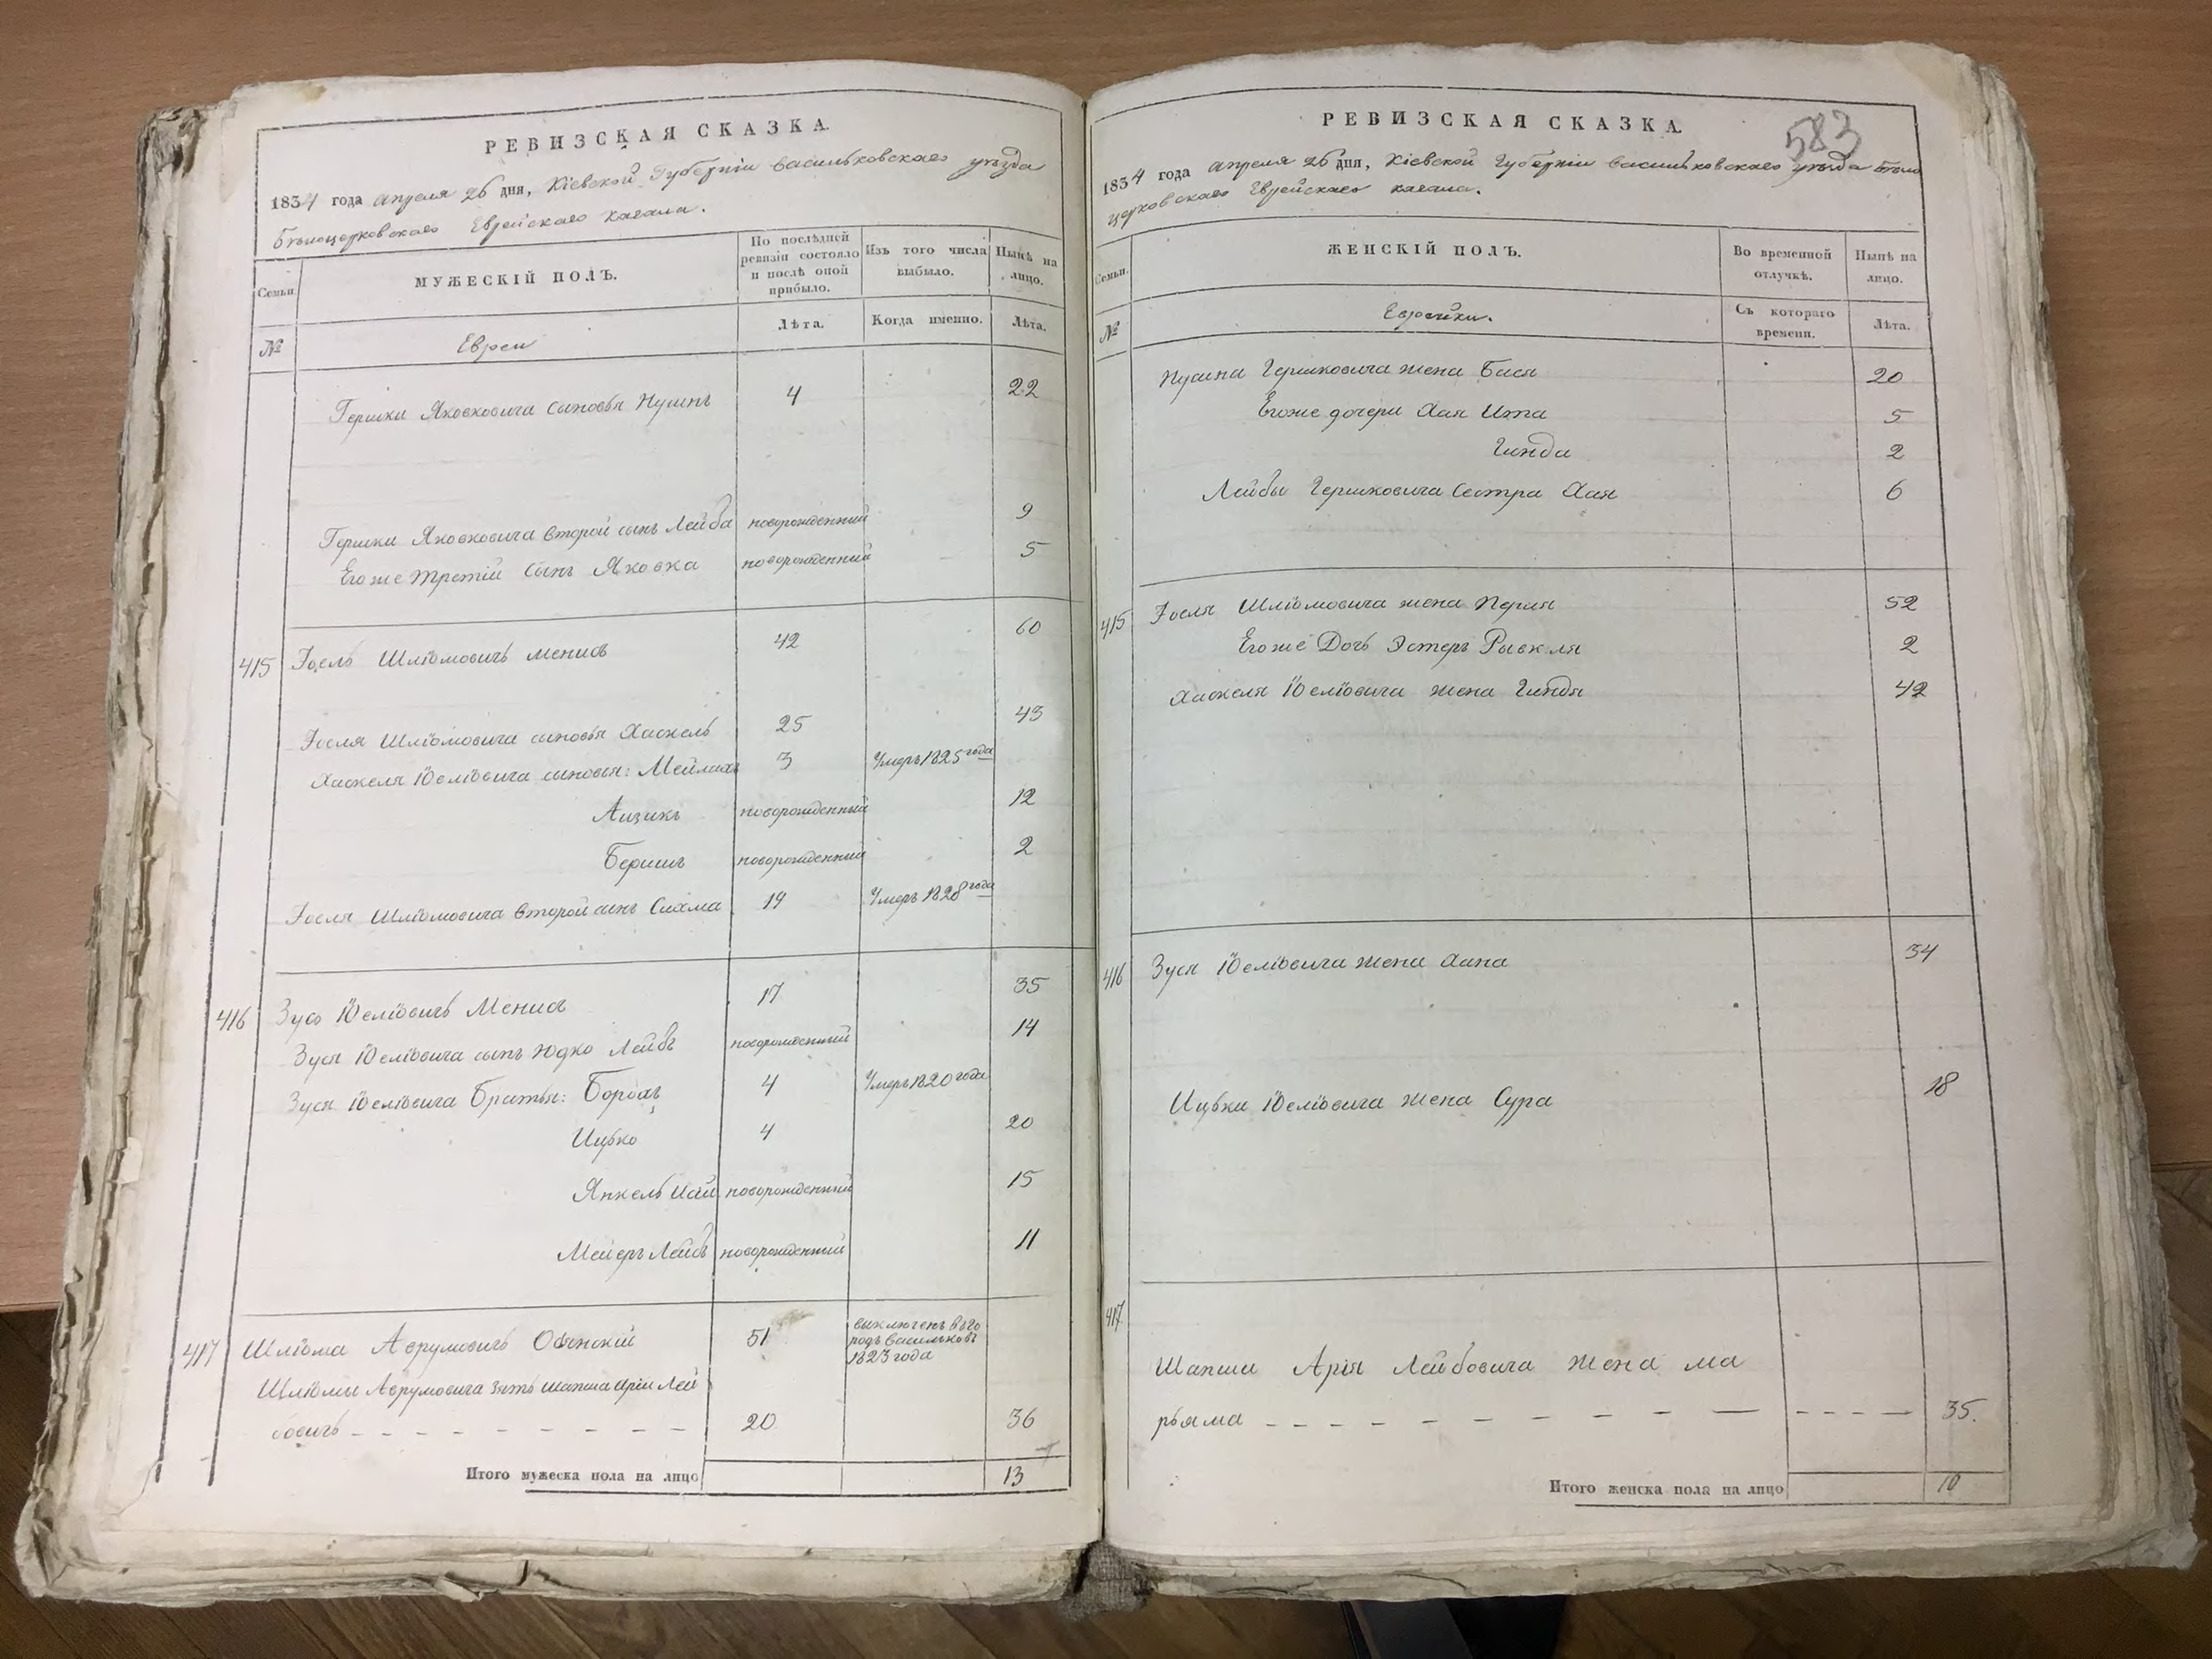 РЕВИЗСКАЯ СКАЗКА.
1834 года апреля 26 дня, Кіевской Губерніи Васильковскаго уѣзда
Бѣлоцерковскаго Еврейскаго кагала.
Семьи.
МУЖЕСКІЙ ПОЛЪ.
По послѣдней ревизіи состояло и послѣ оной прибыло.
Изъ того числа выбыло.
Нынѣ на лицо.
№
Евреи
Лѣта.
Когда именно.
Лѣта.
Гершки Яковковича сыновья Нусинъ 4 22
Гершки Яковковича второй сынъ Лейба новорожденный 9
Егоже третій сынъ Яковка новорожденный 5
415 Іосль Шліомовичъ 42 60
Іосля Шліомовича сыновья Хаскель 25 43
Хаскеля Іоеліовича сыновья: Мейлахъ 3 Умеръ 1825 года
Аизикъ новорожденный 12
Бершъ новорожденный 2
Іосля Шліомовича второй сынъ Симха 19 Умеръ 1828 года
416 Зусь Іоеліовичъ 17 35
Зуся Іоеліовича сынъ Юдко Лейбъ новорожденный 14
Зуся Іоеліовича Братья: Борохъ 4 Умеръ 1820 года
Ицько 4 20
Янкель новорожденный 15
Мейеръ Лейбъ новорожденный 11
417 Шліома Аврумовичъ 51 выключенъ въ городъ Васильковъ 1823 года
Шліомы Аврумовича зять Шапша Арія Лей
бовичъ - - - - - - - - 20 36
Итого мужеска пола на лицо 13
583
РЕВИЗСКАЯ СКАЗКА.
1834 года апреля 26 дня, Кіевской Губерніи Васильковскаго уѣзда Бѣло
церковскаго Еврейскаго кагала.
Семьи.
ЖЕНСКІЙ ПОЛЪ.
Во временной отлучкѣ.
Нынѣ на лицо.
№
Еврейки.
Съ котораго времени.
Лѣта.
Нусина Гершковича жена Бася 20
Егоже дочери Хая Ита 5
Гинда 2
Лейбы Гершковича сестра Хая 6
415 Іосля Шліомовича жена Перля 52
Егоже Дочь Эстеръ Рывкля 2
Хаскеля Іоеліовича жена Гиндя 42
416 Зуся Іоеліовича жена Хана 34
Ицьки Іоеліовича жена Сура 18
417
Шапши Арія Лейбовича жена ма
рьяма - - - - - - - - - - - - 35.
Итого женска пола на лицо 10